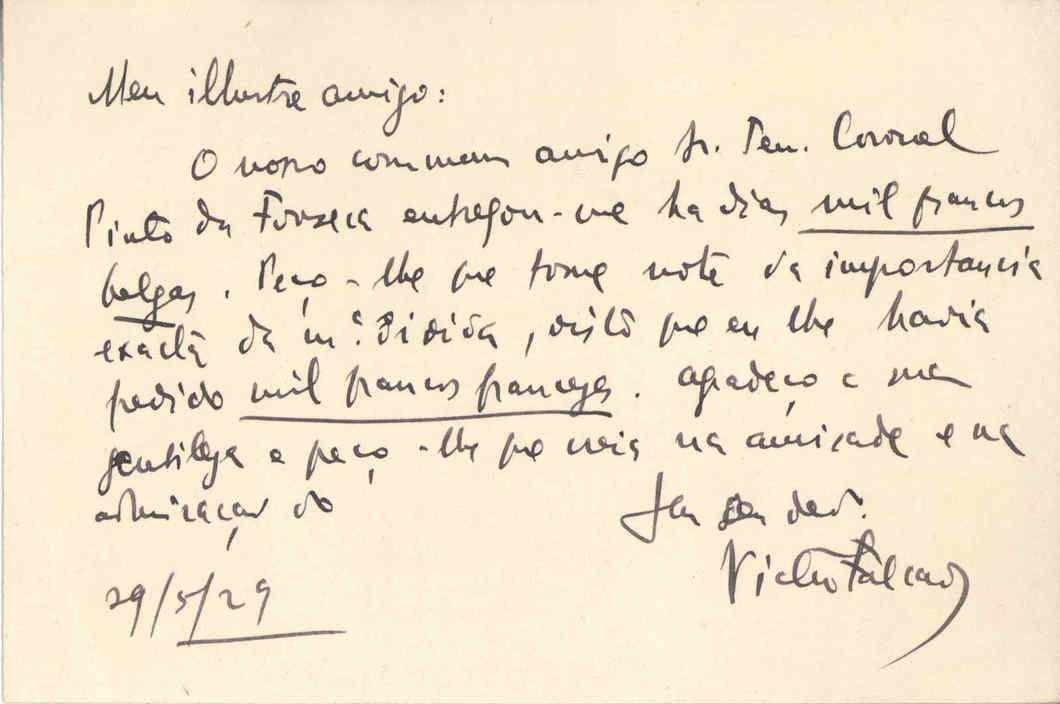 Meu illustre amigo:
O nosso commum amigo Sr. Ten. Coronel
Pinto da Fonseca entregou-me ha dias mil francos
belgas. Peço-lhe que tome nota da importancia
exacta da m.ª divida, visto que eu lhe havia
pedido mil francos francezes. Agradeço a sua
gentileza e peço-lhe que creia na amizade e na
admiração do
Seu ded.
Victor Falcão
29/5/29